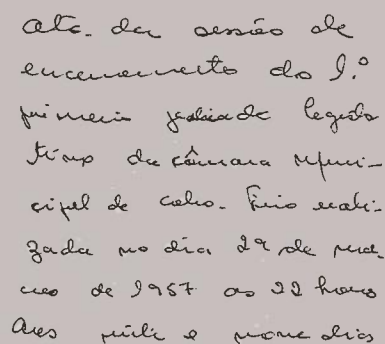 Ata. da sessão de
encerramento do 1.º
primeiro legisla
tivo da câmara Muni-
cipal de Cabo. Frio reali-
zada no dia 29 de mar
co de 1957 as 22 horas
Aos vinte e nove dias